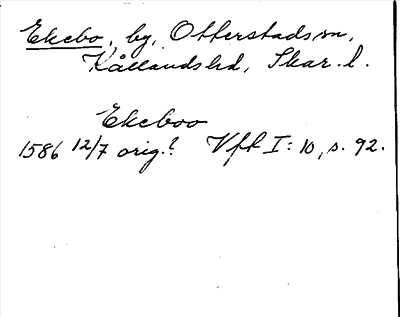 Ekebo, by, Otterstads sn,
Kållands hd, Skar. l.
Ekeboo
1586 12/7 orig.? Vft I: 10, s. 92.